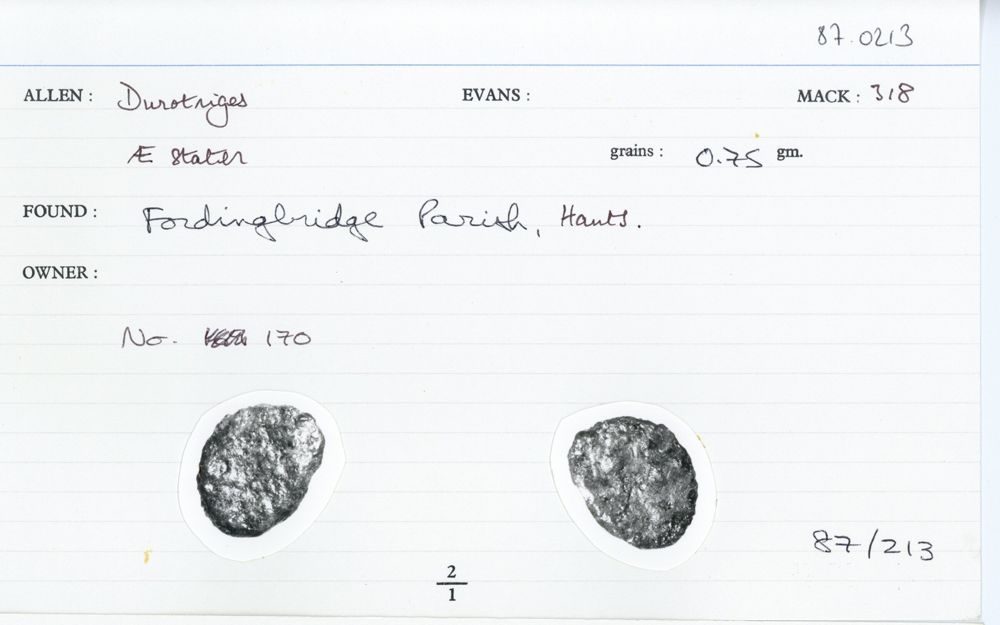 87.0213
ALLEN : Durotriges EVANS : MACK : 318
Æ Stater grains : 0.75 gm.
FOUND : Fordingbridge Parish, Hants.
OWNER :
No. 170
87/213
2
1